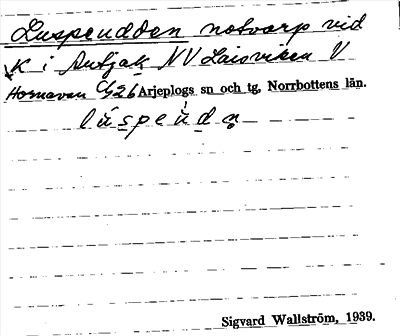 Luspeudden notvarp vid
K i Autjak NV Laisviken V
Hornavan C/926 Arjeplogs sn och tg, Norrbottens län.
luspeudn
Sigvard Wallström, 1939.